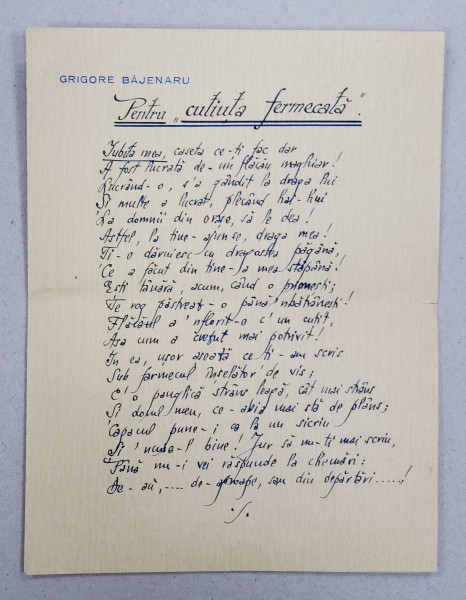 GRIGORE BĂJENARU
Pentru „cutiuța fermecată”.
Iubita mea, caseta ce-ți fac dar
A fost lucrată de-un flăcău maghiar!
Lucrând-o, s'a gândit la draga lui
Și multe a lucrat, plecând hai-hui
La domnii din orașe, să le dea!
Astfel, la tine-ajunse, draga mea!
Ți-o dăruiesc cu dragostea păgână,
Ce a făcut din tine-a mea stăpână!
Ești tânără, acum, când o primești;
Te rog păstreaz-o până 'nbătrânești!
Flăcăul a 'nflorit-o c'un cuțit,
Așa cum a crezut mai potrivit!
In ea, ușor așează ce ți-am scris
Sub farmecul înșelător de vis;
C'o panglică strâns leagă, cât mai strâns
Și dorul meu, ce-abia mai stă de plâns;
Capacul pune-i ca la un sicriu
Și 'ncuia-l bine! Jur să nu-ți mai scriu,
Până nu-i vei răspunde la chemări:
De-aci, .... de-aproape, sau din depărtări.....!